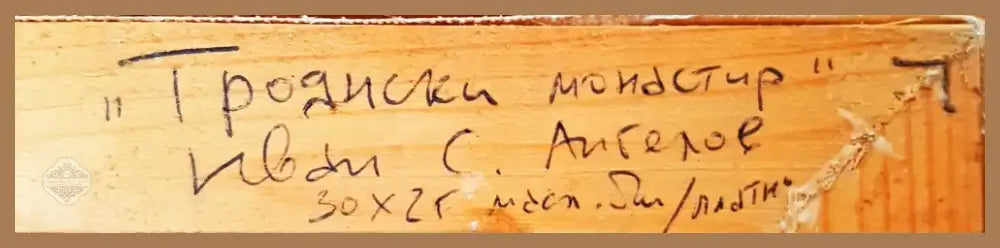 „Троянски монастир“
Иван С. Ангелов
30x25 масл. бои/платно